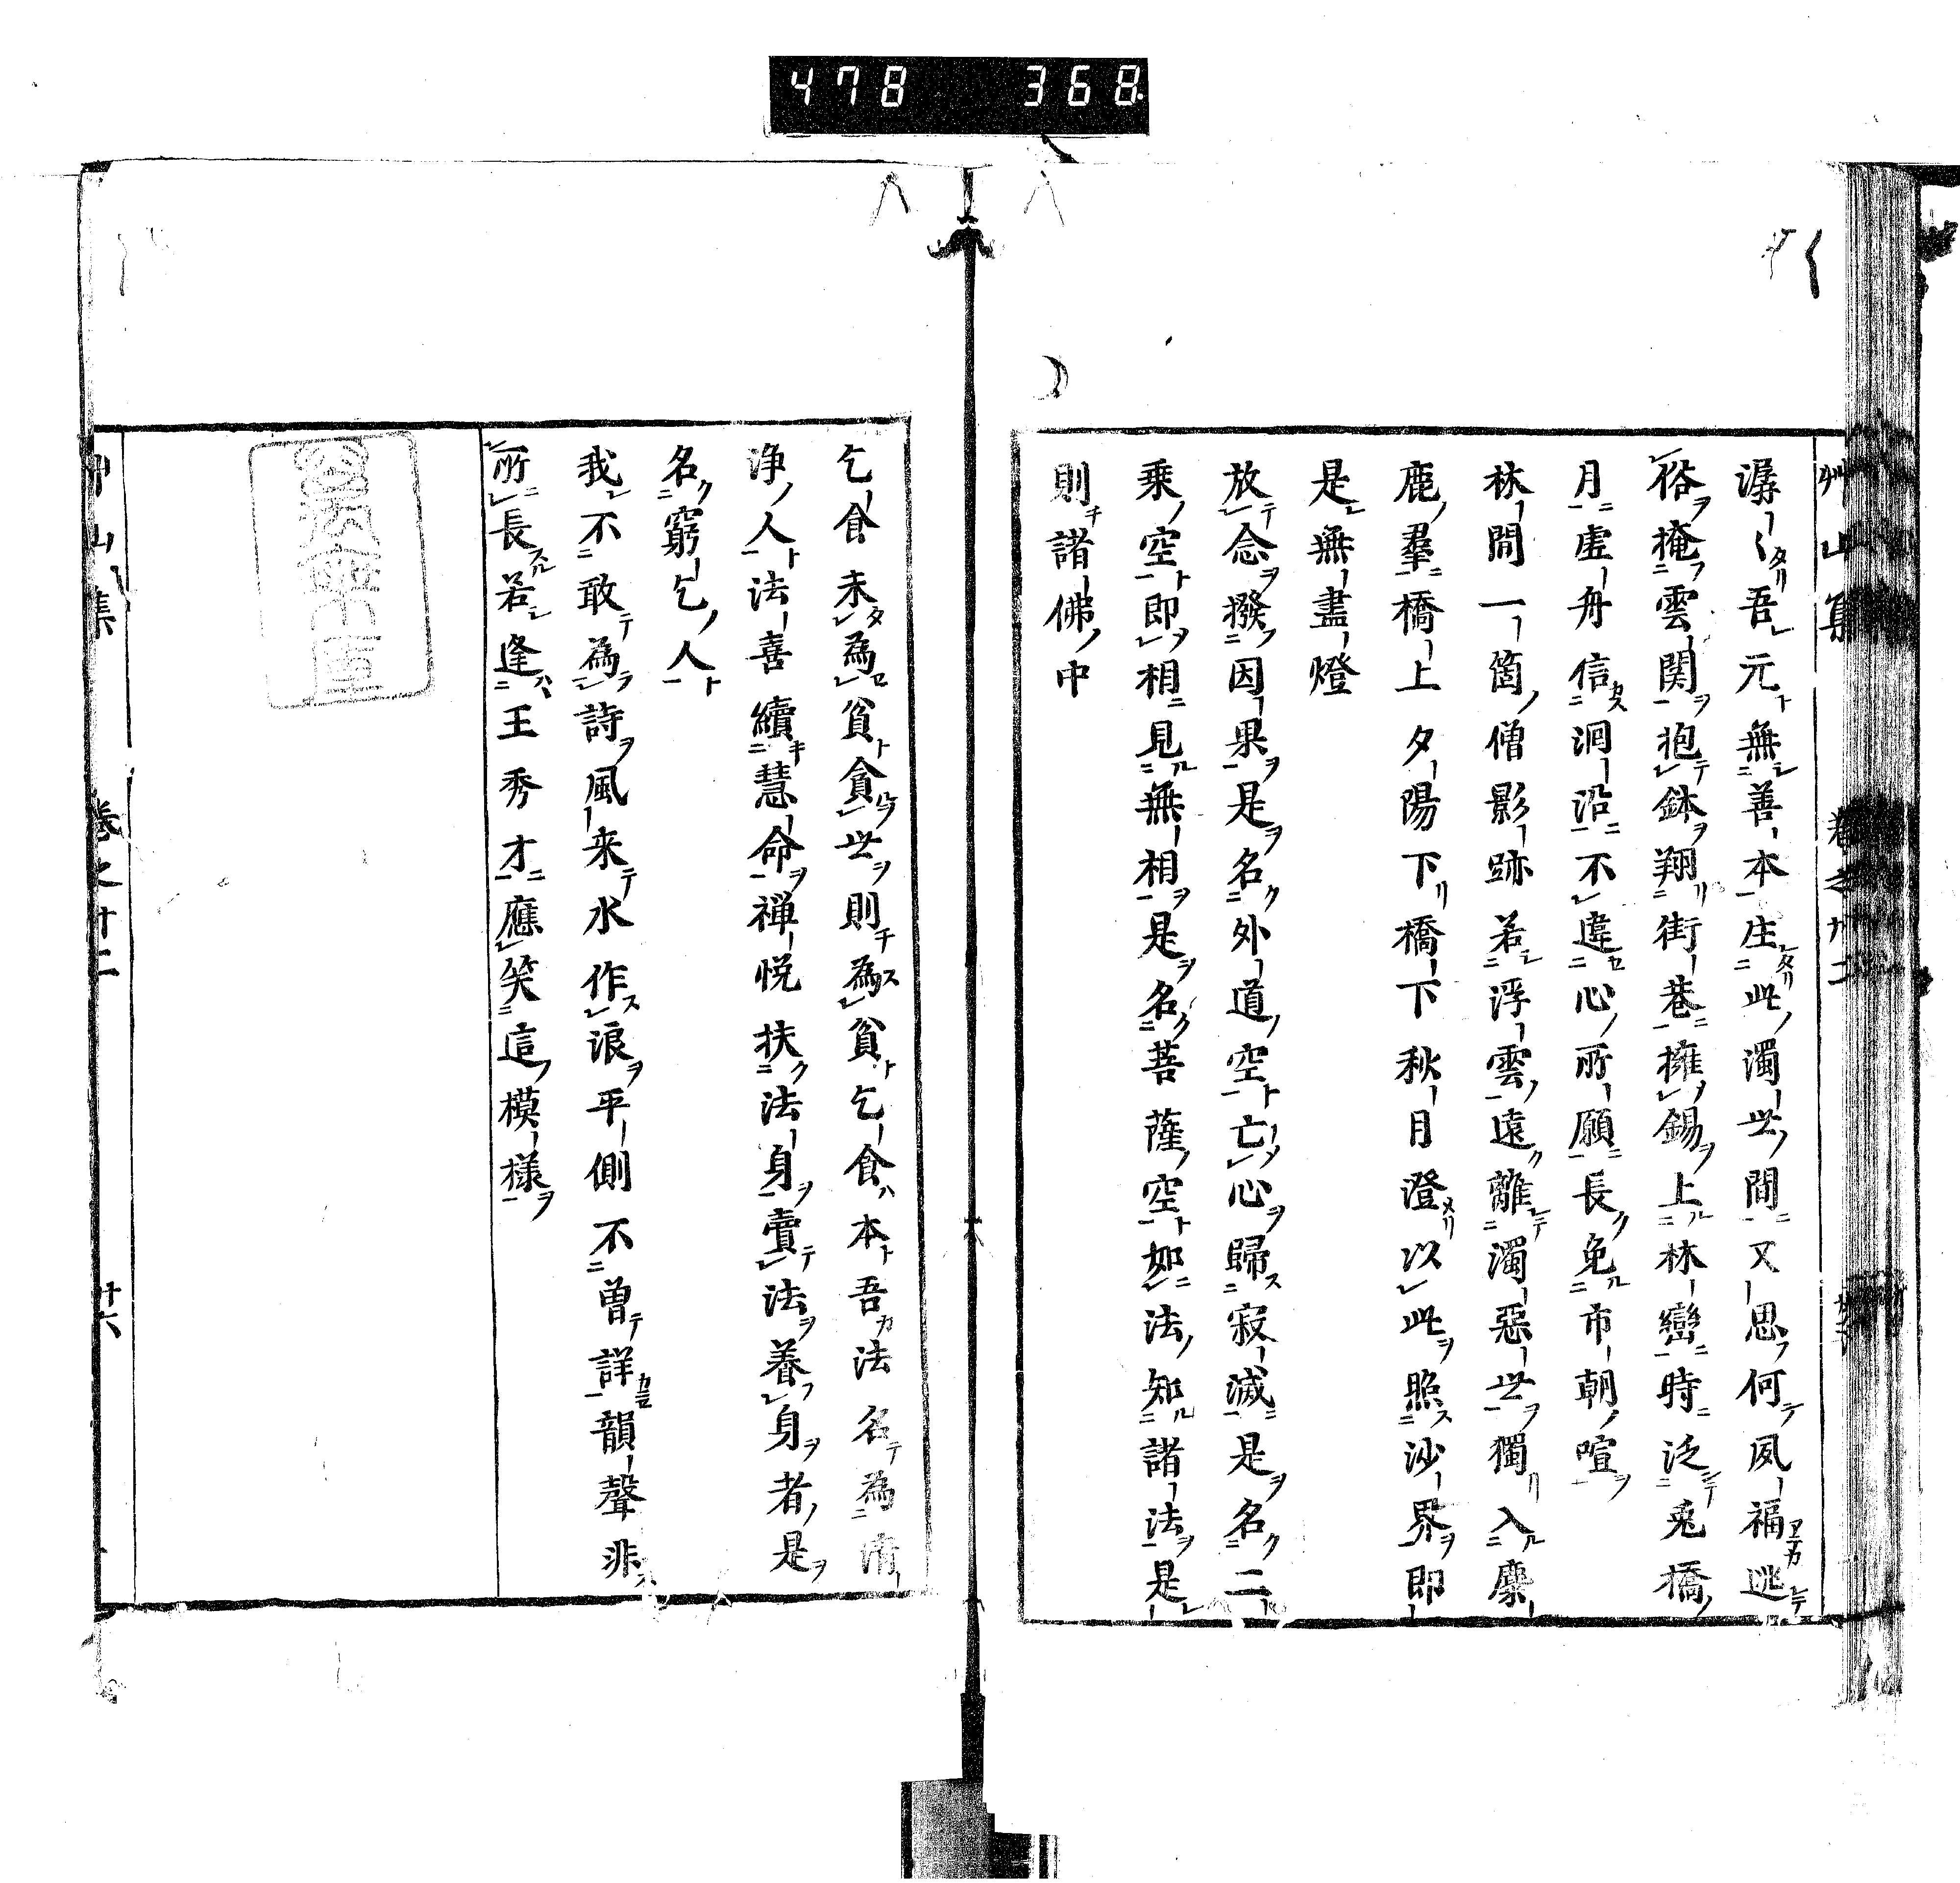 478 368
艸山集 卷之十二
潺〻吾元無善本庄此濁世間又思何夙福逃
俗掩雲関抱鉢翔街巷擁錫上林巒時泛兎橋
月虚舟信洄沿不違心所願長免市朝喧
林間一箇僧影跡若浮雲遠離濁惡世獨入麋
鹿羣橋上夕陽下橋下秋月澄以此照沙界即
是無盡燈
放念撥因果是名外道空亡心歸寂滅是名二
乗空即相見無相是名菩薩空如法知諸法是
則諸佛中
乞食未為貧貪世則為貧乞食本吾法名為清
浄人法喜續慧命禅悦扶法身賣法養身者是
名窮乞人
我不敢為詩風来水作浪平側不曽詳韻聲非
所長若逢王秀才應笑這模様
艸山集 卷之十二 廿六